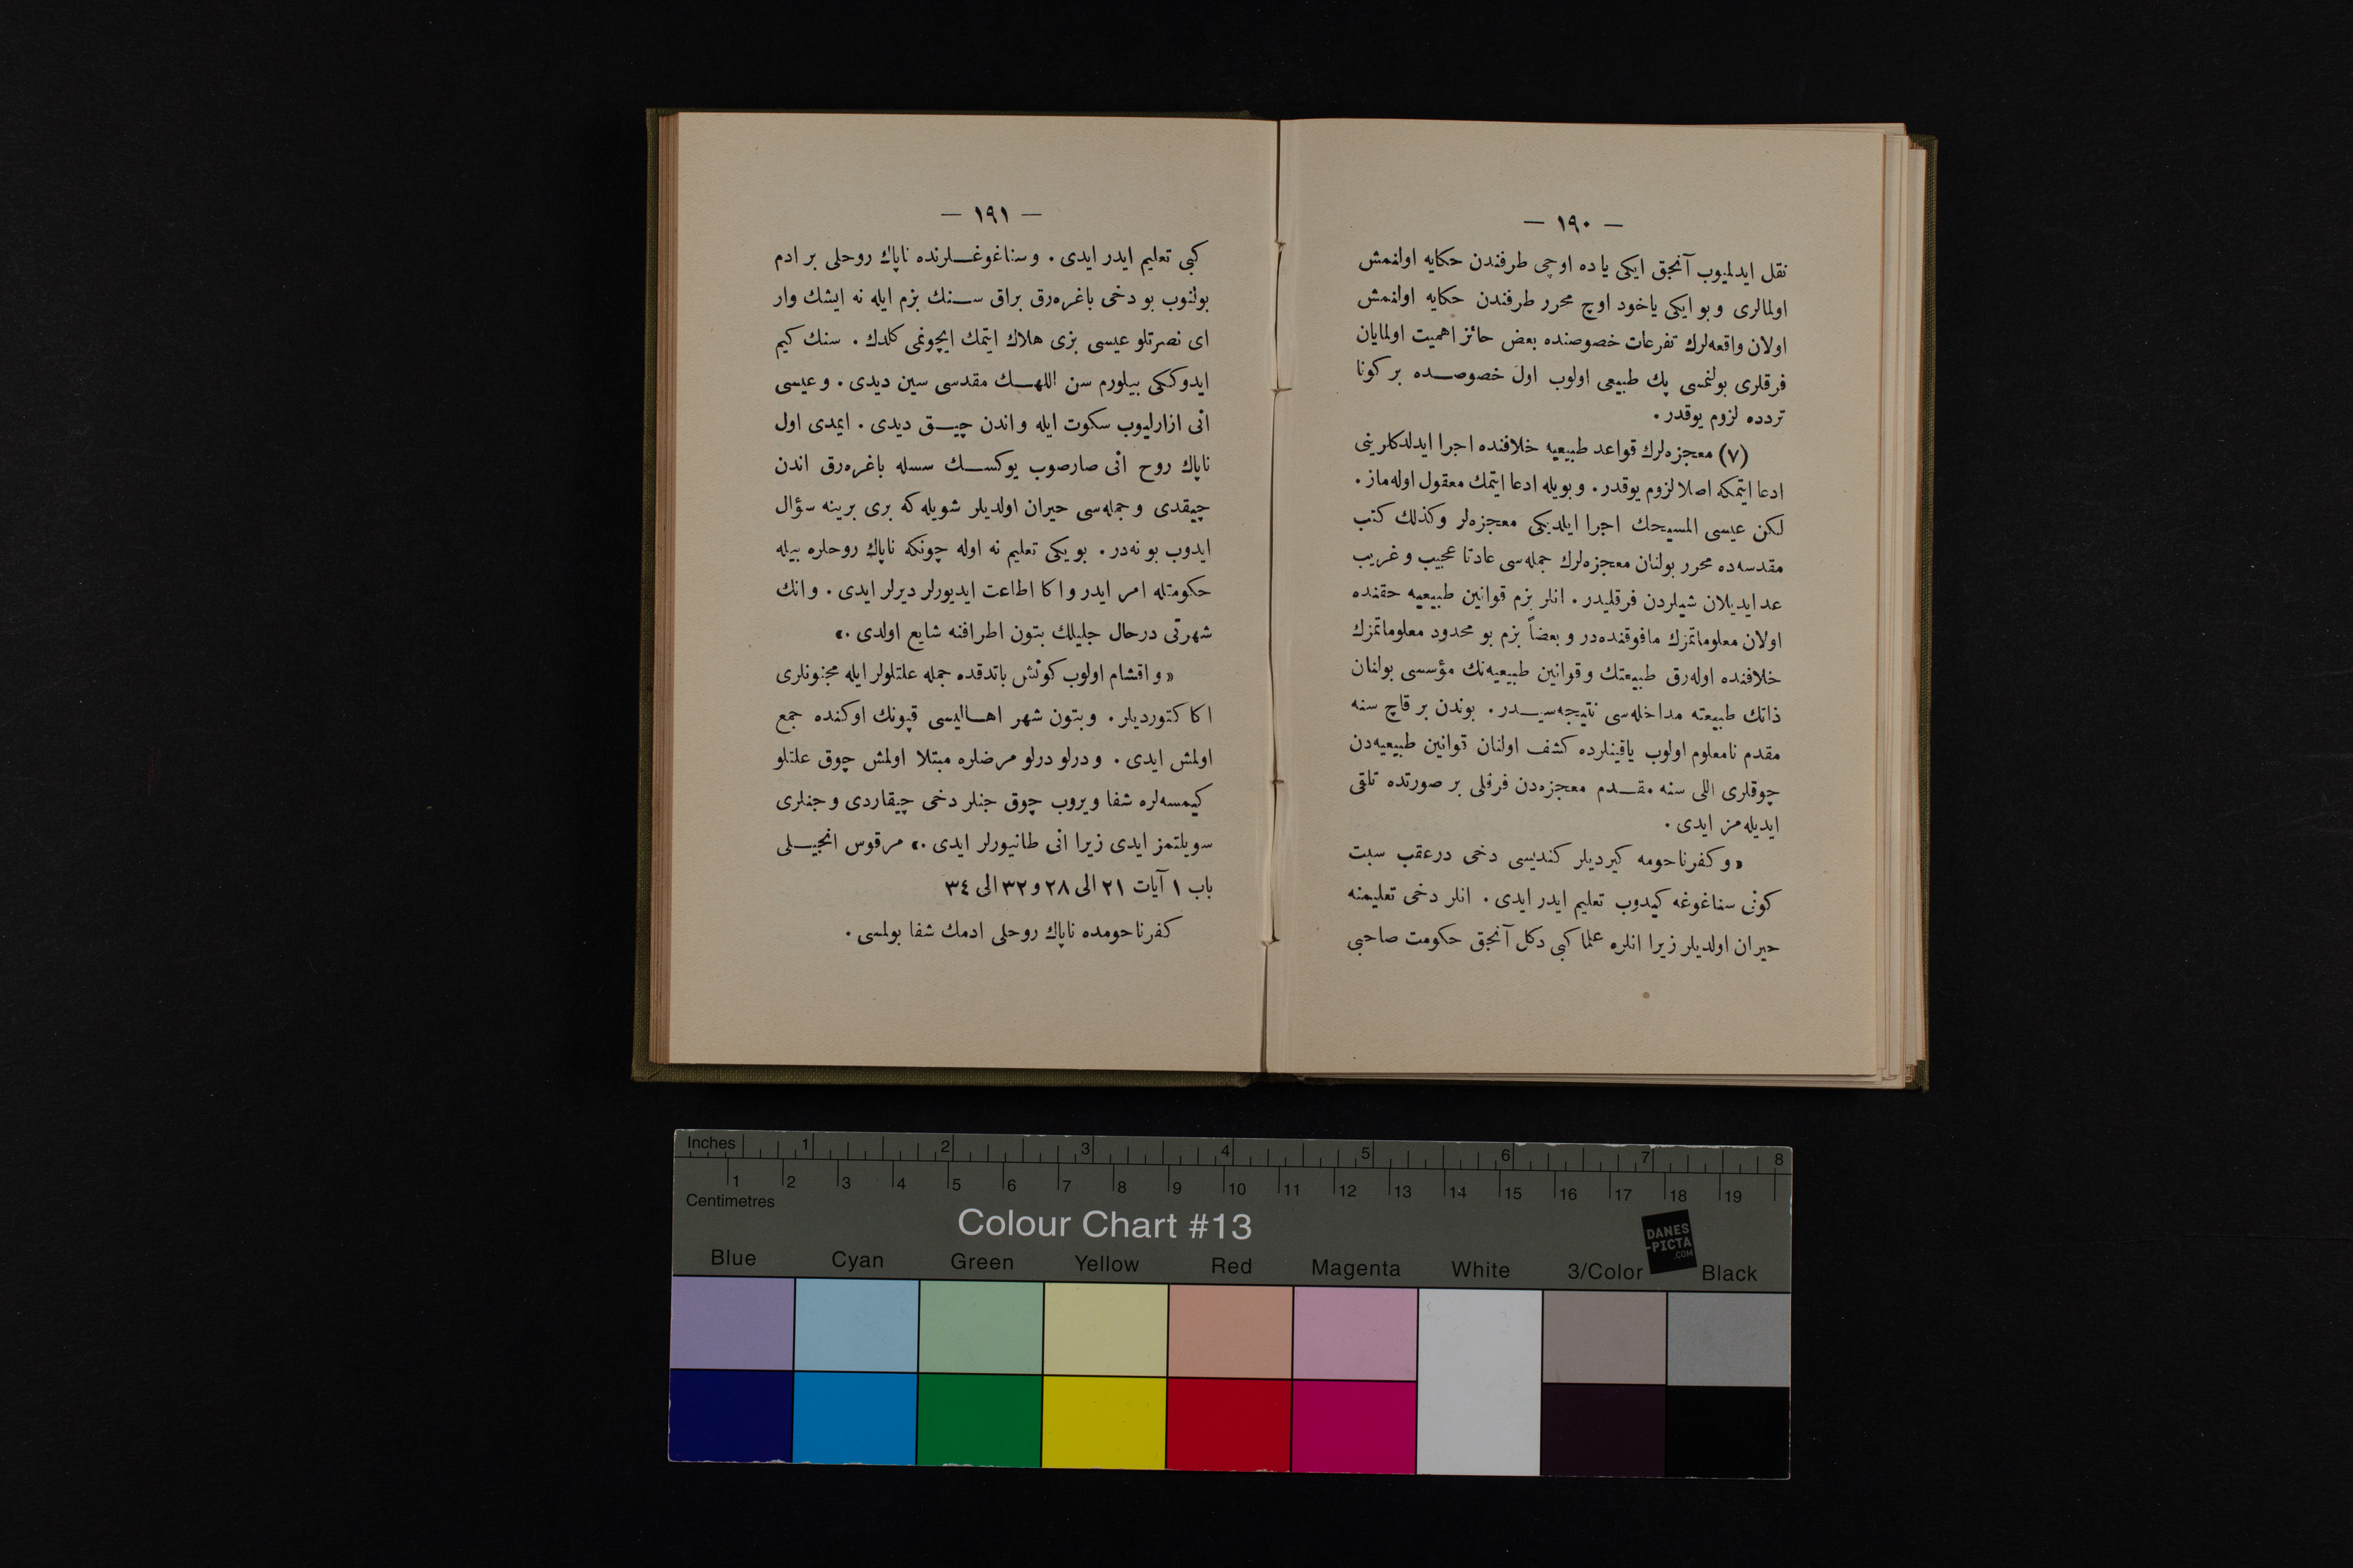 — ١٩٠ —
نقل ايدلميوب آنجق ايكى ياده اوچى طرفندن حكايه اولنمش
اولمالرى وبو ايكى ياخود اوچ محرر طرفندن حكايه اولنمش
اولان واقعه‌لرك تفرعات خصوصنده بعض حائز اهميت اولمايان
فرقلرى بولنمسى پك طبيعى اولوب اول خصوصـده بر كونا
تردده لزوم يوقدر.
(٧) معجزه‌لرك قواعد طبيعيه خلافنده اجرا ايدلدكلرينى
ادعا ايتمكه اصلا لزوم يوقدر. وبويله ادعا ايتمك معقول اوله‌ماز.
لكن عيسى المسيحك اجرا ايلديكى معجزه‌لر وكذلك كتب
مقدسه‌ده محرر بولنان معجزه‌لرك جمله‌سى عادتا عجيب وغريب
عد ايديلان شيلردن فرقليدر. انلر بزم قوانين طبيعيه حقنده
اولان معلوماتمزك مافوقنده‌در و بعضاً بزم بو محدود معلوماتمزك
خلافنده اوله‌رق طبيعتك وقوانين طبيعيه‌نك مؤسسى بولنان
ذاتك طبيعته مداخله‌سى نتيجه‌سيـدر. بوندن بر قاچ سنه
مقدم نامعلوم اولوب ياقينلرده كشف اولنان قوانين طبيعيه‌دن
چوقلرى اللى سنه مقـدم معجزه‌دن فرقلى بر صورتده تلقى
ايديله‌مز ايدى.
« وكفرناحومه كيرديلر كنديسى دخى درعقب سبت
كونى سناغوغه كيدوب تعليم ايدر ايدى. انلر دخى تعليمنه
حيران اولديلر زيرا انلره علما كبى دكل آنجق حكومت صاحبى
— ١٩١ —
كبى تعليم ايدر ايدى. وسناغوغـلرنده ناپاك روحلى بر ادم
بولنوب بو دخى باغره‌رق براق سـنك بزم ايله نه ايشك وار
اى نصرتلو عيسى بزى هلاك ايتمك ايچونمى كلدك. سنك كيم
ايدوككى بيلورم سن اللهـك مقدسى سين ديدى. وعيسى
انى ازارليوب سكوت ايله واندن چيـق ديدى. ايمدى اول
ناپاك روح انى صارصوب يوكسـك سسله باغره‌رق اندن
چيقدى وجمله‌سى حيران اولديلر شويله‌كه برى برينه سؤال
ايدوب بو نه‌در. بو يكى تعليم نه اوله چونكه ناپاك روحلره بيله
حكومتله امر ايدر واكا اطاعت ايديورلر ديرلر ايدى. وانك
شهرتى درحال جليلك بتون اطرافنه شايع اولدى.»
« واقشام اولوب كونش باتدقده جمله علتلولر ايله مجنونلرى
اكا كتورديلر. وبتون شهر اهـاليسى قپونك اوكنده جمع
اولمش ايدى. ودرلو درلو مرضلره مبتلا اولمش چوق علتلو
كيمسه‌لره شفا ويروب چوق جنلر دخى چيقاردى وجنلرى
سويلتمز ايدى زيرا انى طانيورلر ايدى.» مرقوس انجيـلى
باب ١ آيات ٢١ الى ٢٨ و ٣٢ الى ٣٤
كفرناحومده ناپاك روحلى ادمك شفا بولمسى.
Inches 1 2 3 4 5 6 7 8
1 2 3 4 5 6 7 8 9 10 11 12 13 14 15 16 17 18 19
Centimetres
Colour Chart #13
DANES
-PICTA
.COM
Blue Cyan Green Yellow Red Magenta White 3/Color Black